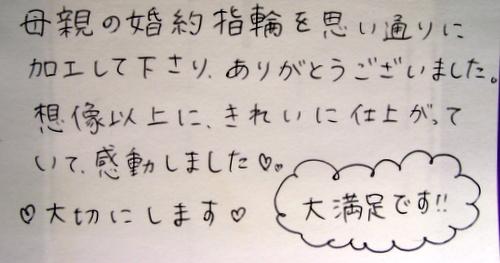 母親の婚約指輪を思い通りに
加工して下さり、ありがとうございました。
想像以上に、きれいに仕上がって
いて、感動しました♡。
♡大切にします♡
大満足です!!